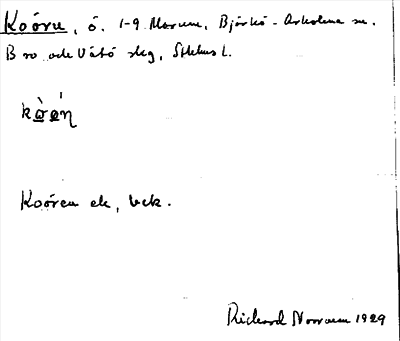 Koören, ö. 1-9 Marum, Björkö-Arholma sn.
Bro och Vätö skg, Sthlms l.
Koören ek, bek.
Richard Norrman 1929